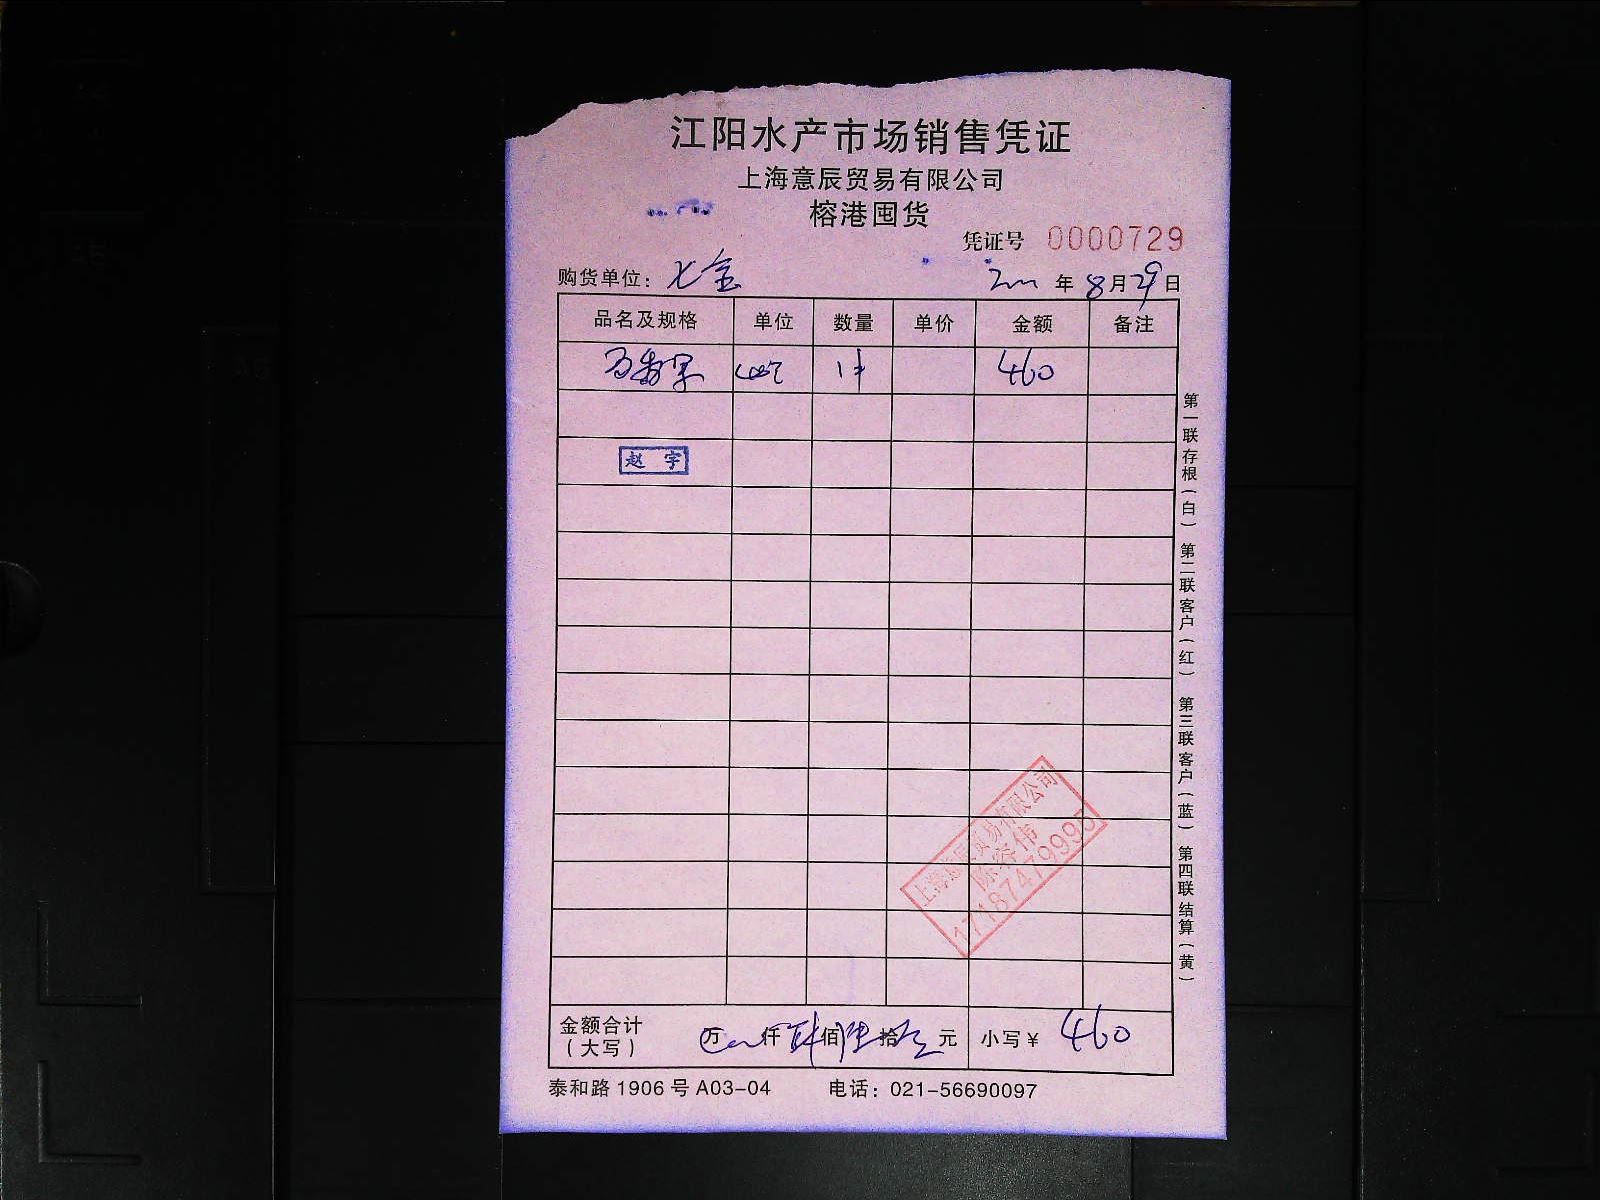 江阳水产市场销售凭证
上海意辰贸易有限公司
榕港囤货
凭证号 0000729
购货单位：七宝 年 8月29日
品名及规格 单位 数量 单价 金额 备注
1件 460
赵 宇
上海意辰贸易有限公司
陈容伟
金额合计（大写） 万 仟 肆佰陆拾元 小写¥ 460
泰和路 1906 号 A03-04 电话：021-56690097
第一联存根（白） 第二联客户（红） 第三联客户（蓝） 第四联结算（黄）